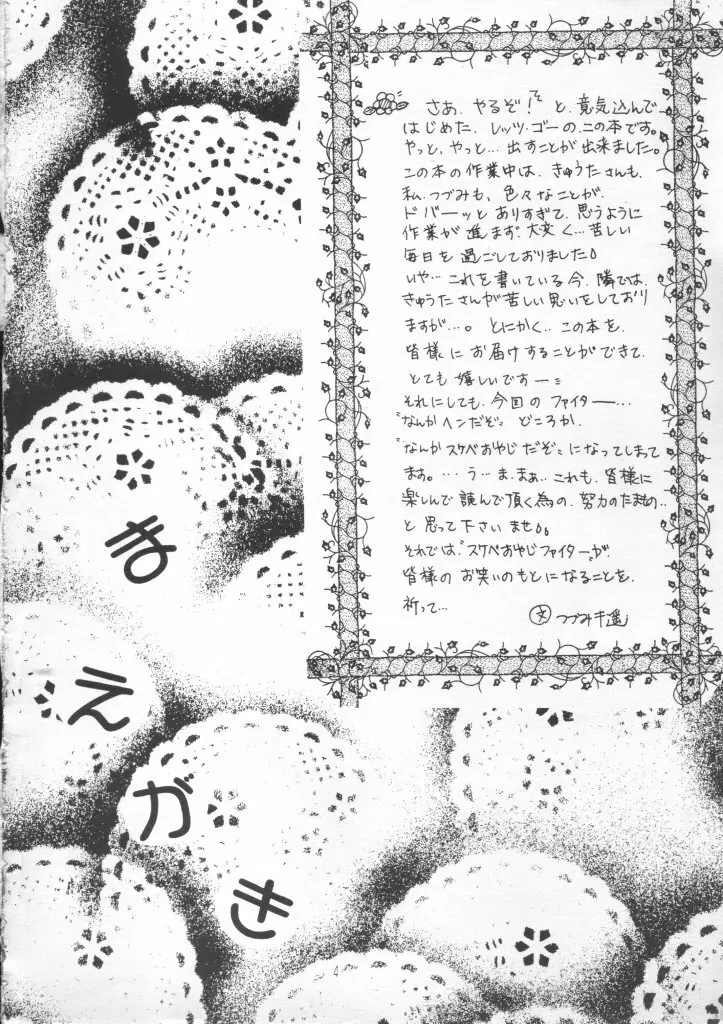 さあ、やるぞ!と、意気込んで
はじめた、レッツ・ゴーの、この本です。
やっと、やっと…出すことが出来ました。
この本の作業中は、きゅうたさんも、
私、つづみも、色々なことが、
ドバーッとありすぎて、思うように
作業が進まず、大変く…苦しい
毎日を過ごしておりました。
いや…これを書いている今、隣では、
きゅうたさんが苦しい思いをしており
ますが…。とにかく、この本を、
皆様にお届けすることができて、
とても嬉しいですー
それにしても、今回のファイター…
"なんかヘンだぞ"どころか、
"なんかスケベおやじだぞ"になってしまって
ます。…う…ま、まぁ、これも、皆様に
楽しんで読んで頂く為の、努力のたまもの…
と思って下さいませ。
それでは"スケベおやじファイター"が、
皆様のお笑いのもとになることを、
祈って…
文 つづみ遥
まえがき
4